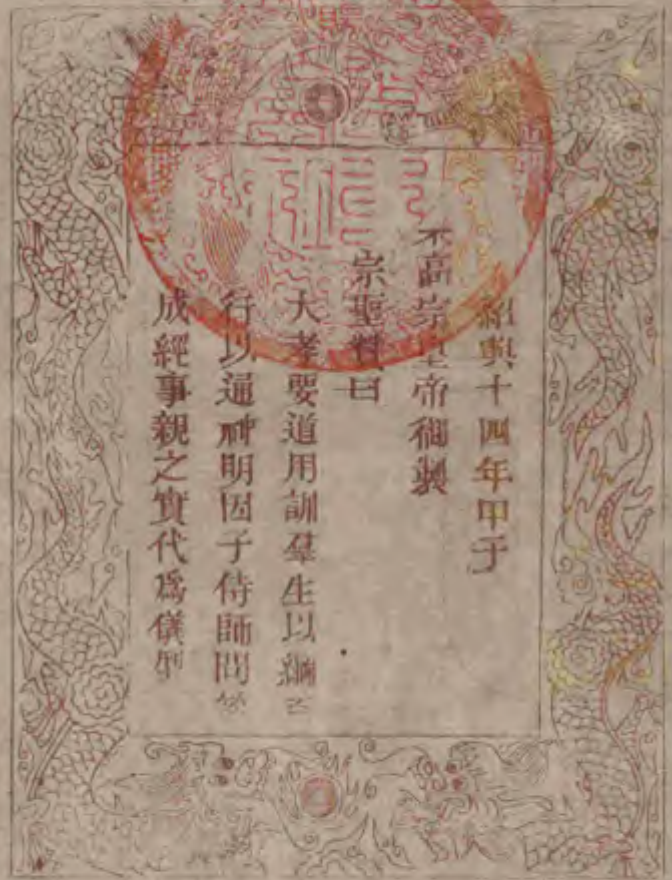 紹興十四年甲子
宋高宗皇帝御製
宗聖贊曰
大孝要道用訓羣生以綱百
行以通神明因子侍師問答
成經事親之實代爲儀刑